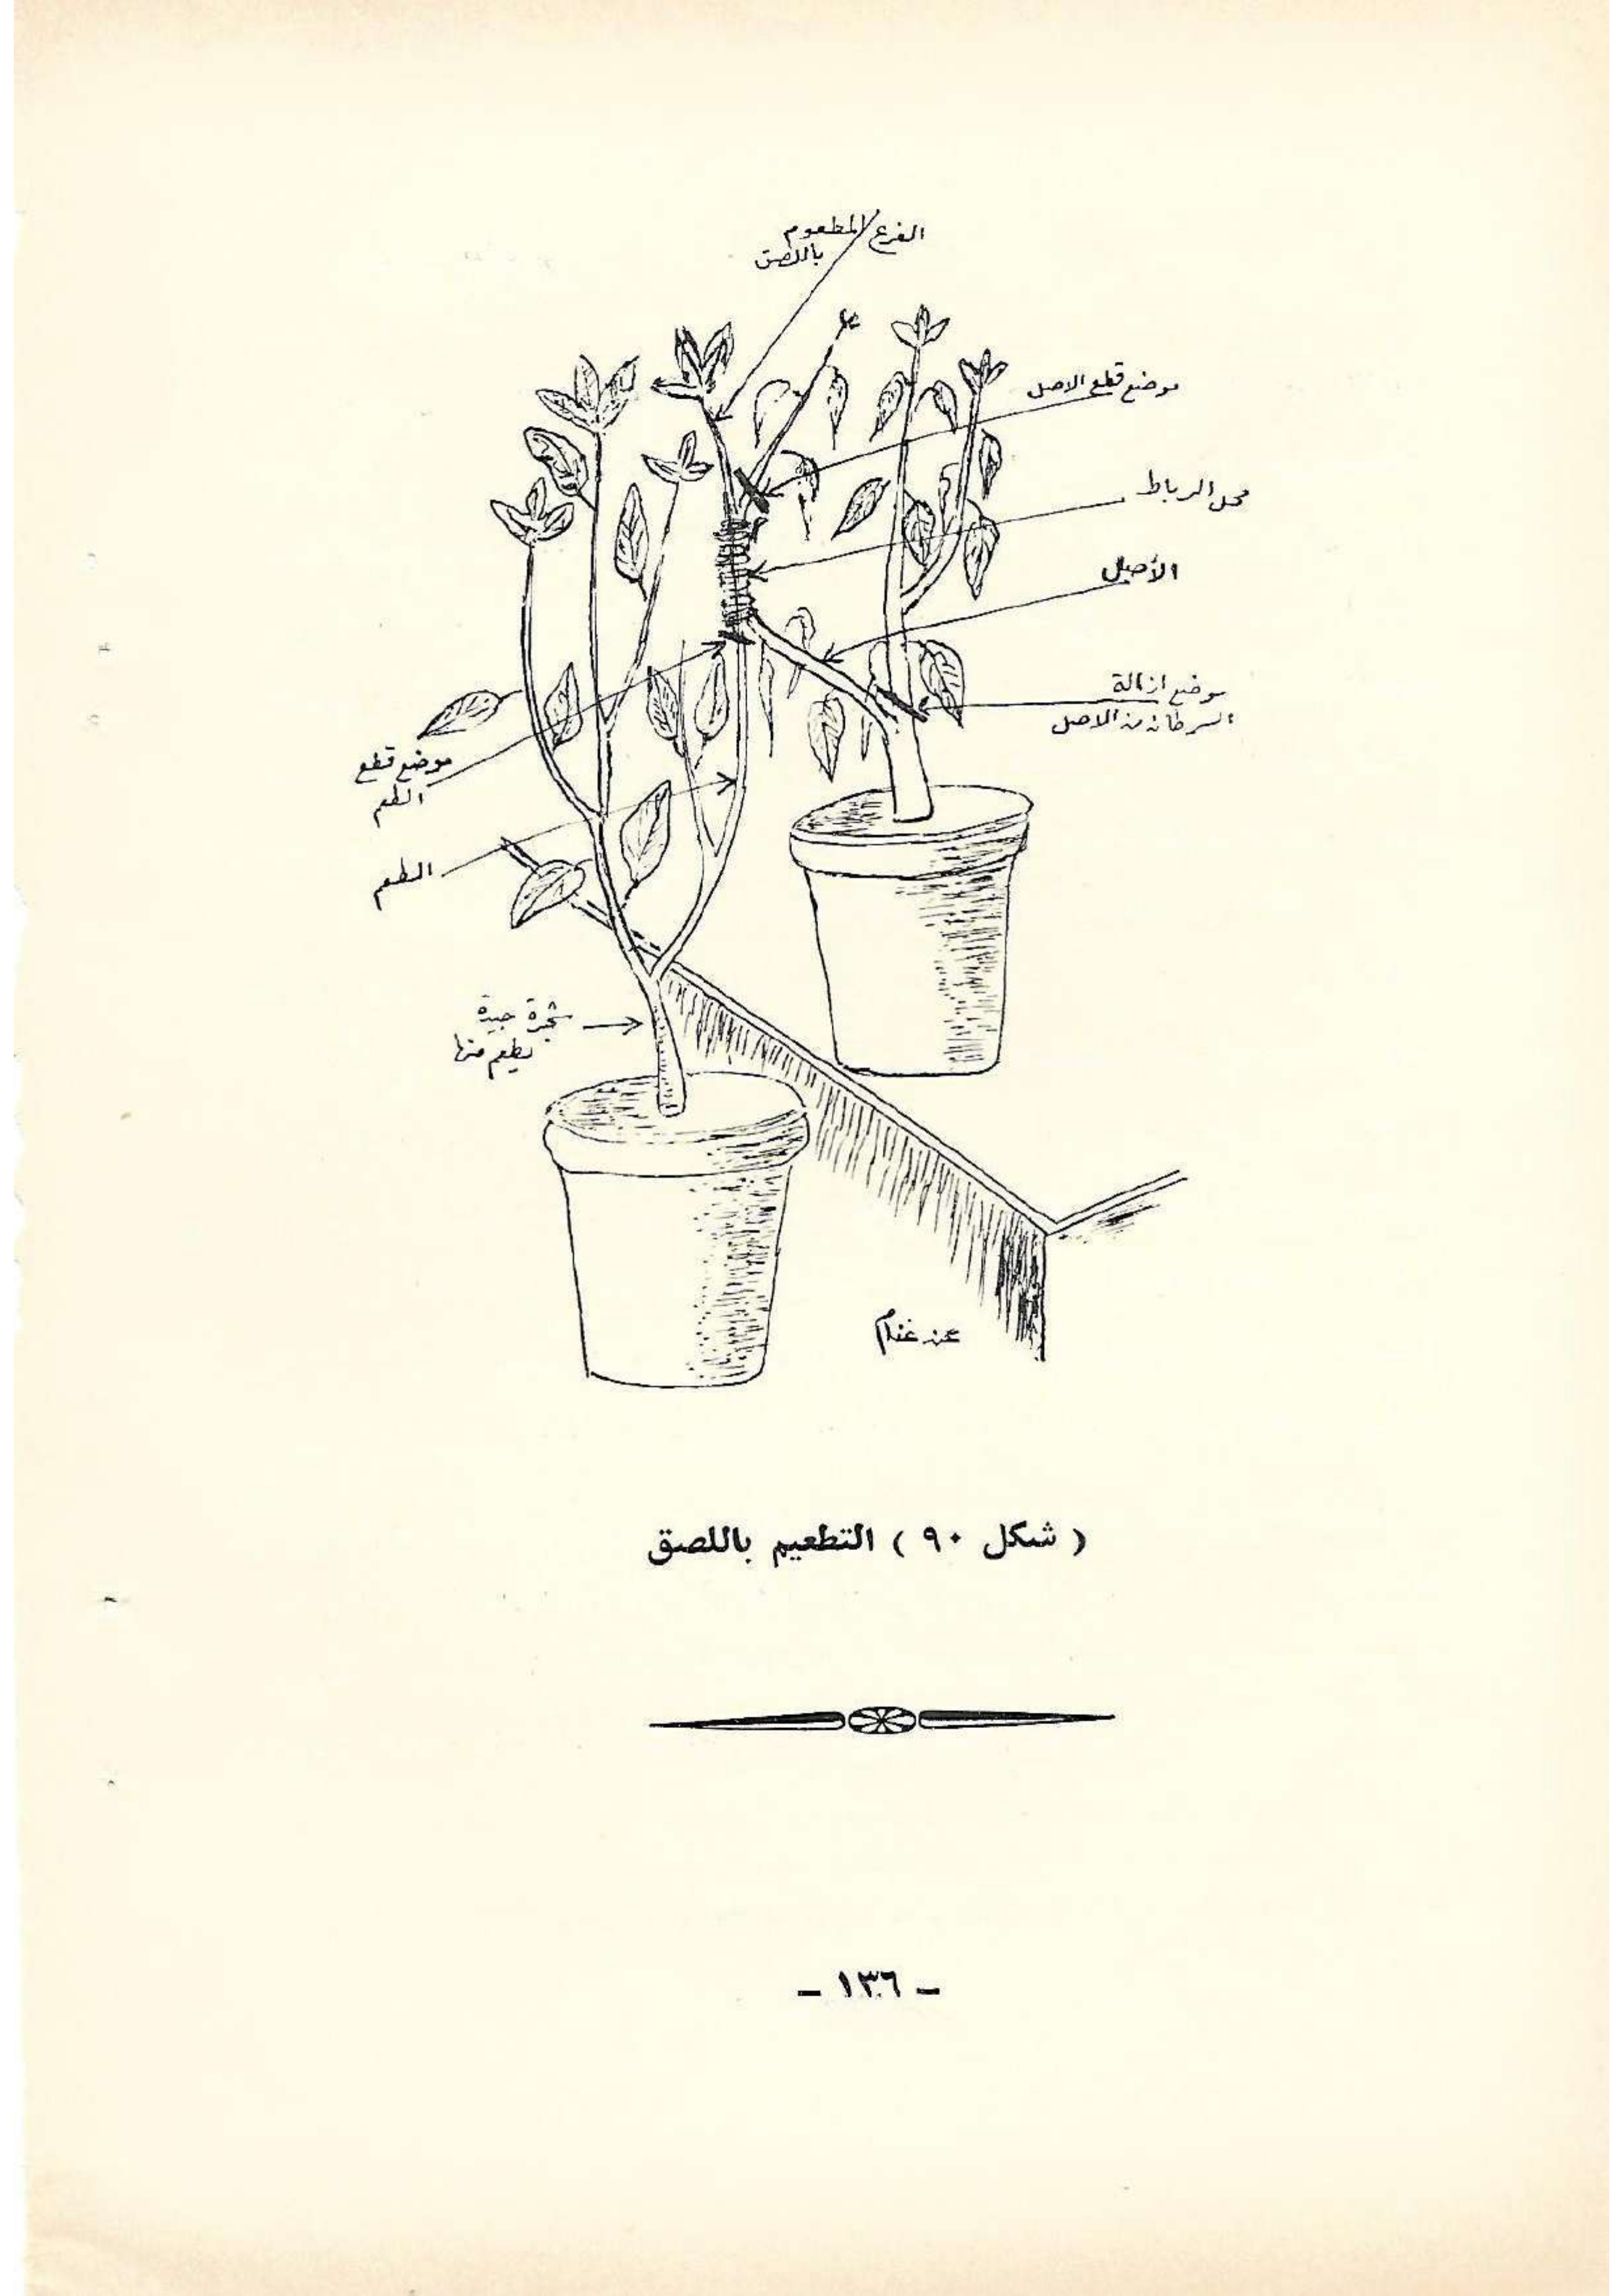 الفرع المطعوم
باللصق
موضع قطع الاصل
محل الرباط
الأصل
موضع ازالة
السرطانات من الاصل
موضع قطع
الطعم
الطعم
شجرة جيدة
يطعم منها
عن غنام
( شكل ٩٠ ) التطعيم باللصق
– ١٣٦ –